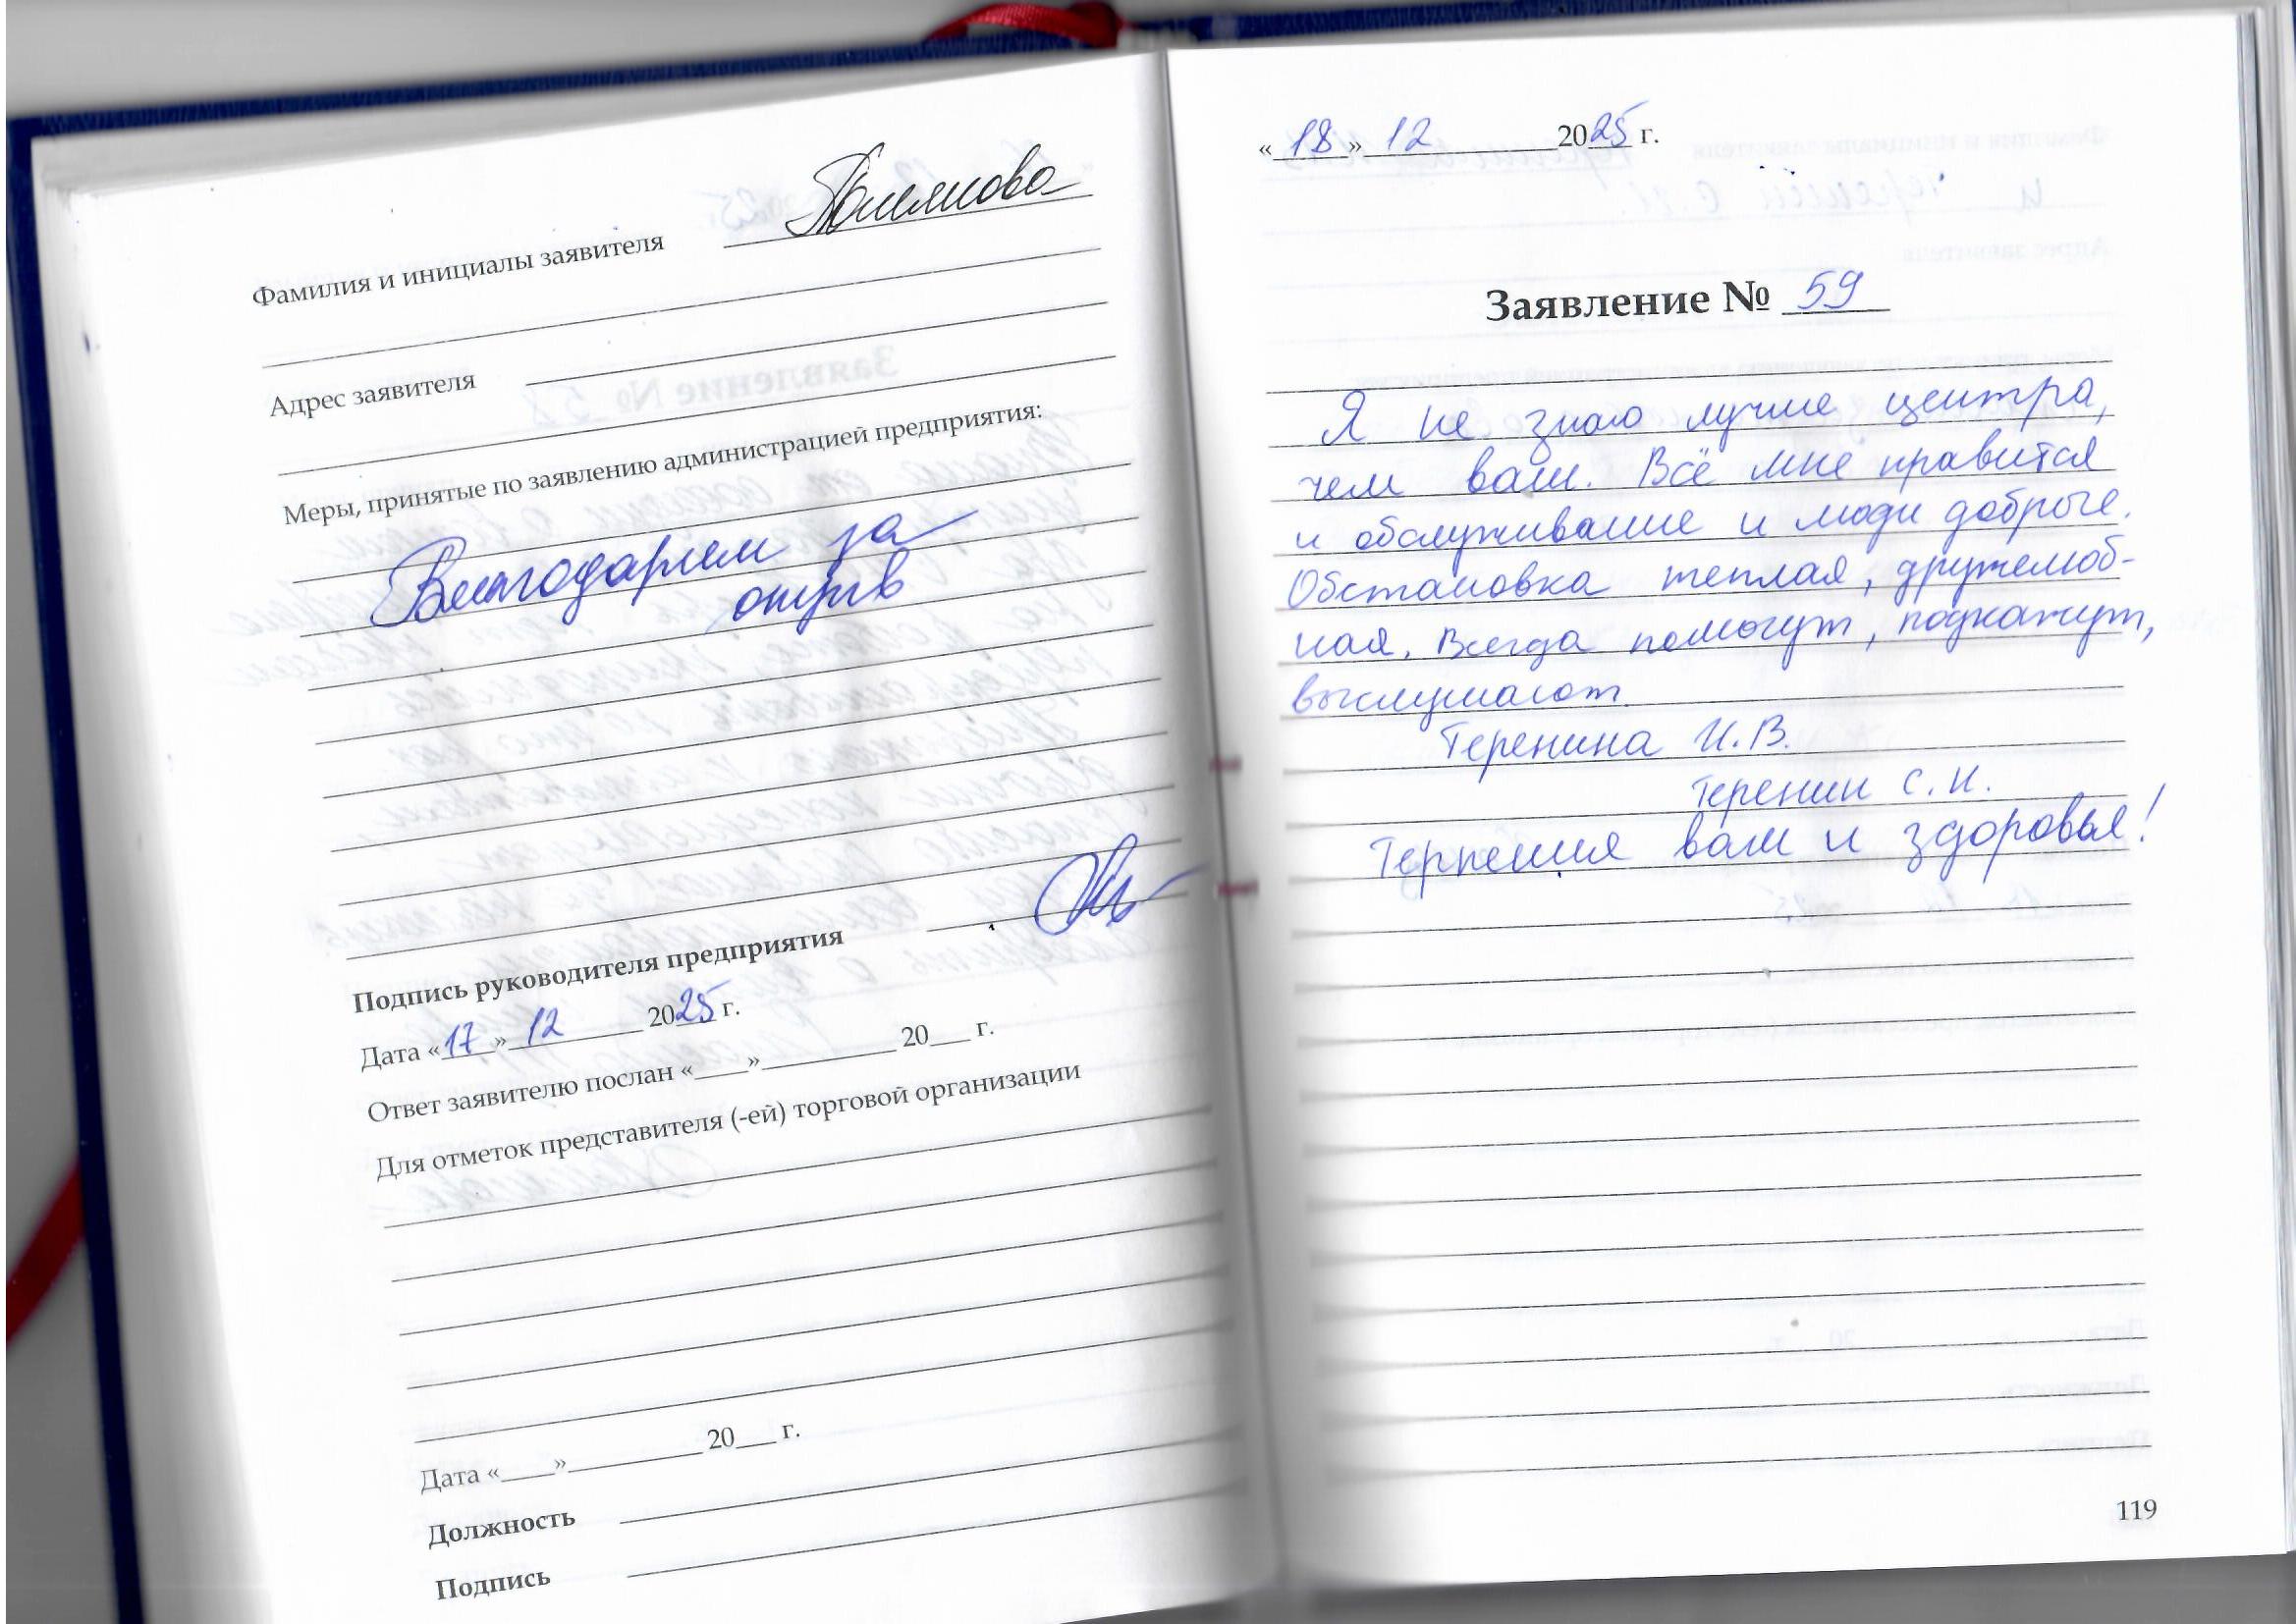 Фамилия и инициалы заявителя
Адрес заявителя
Меры, принятые по заявлению администрацией предприятия:
Благодарим за
отзыв
Подпись руководителя предприятия
Дата «17» 12 2025 г.
Ответ заявителю послан «___»__________ 20___ г.
Для отметок представителя (-ей) торговой организации
Дата «___»__________ 20___ г.
Должность
Подпись
«18» 12 2025 г.
Заявление № 59
Я не знаю лучше центра,
чем ваш. Всё мне нравится
и обслуживание и люди добрые.
Обстановка теплая, дружелюб-
ная. Всегда помогут, подскажут,
выслушают.
Теренина И.В.
Теренин С.И.
Терпения вам и здоровья!
119